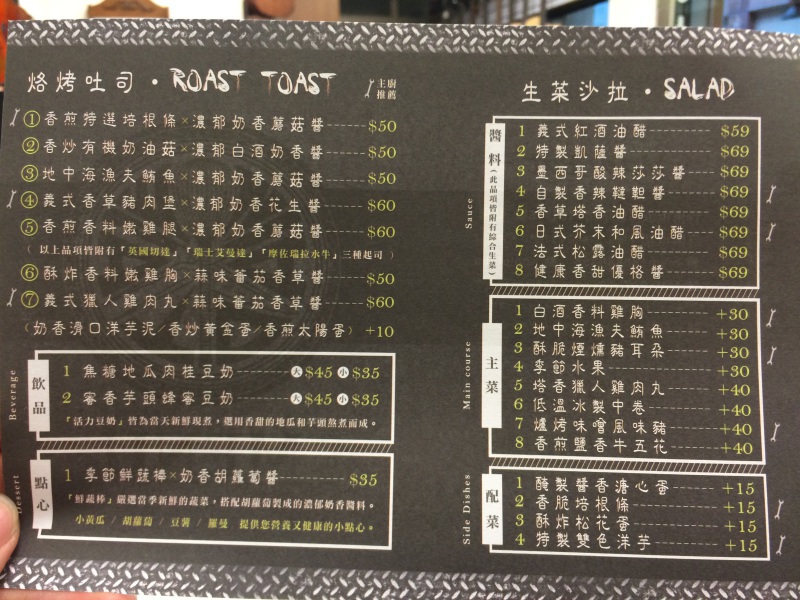 烙烤吐司・ROAST TOAST
主廚推薦
① 香煎特選培根條×濃郁奶香蘑菇醬 $50
② 香炒有機奶油菇×濃郁白酒奶香醬 $50
③ 地中海漁夫鮪魚×濃郁奶香蘑菇醬 $50
④ 義式香草豬肉堡×濃郁奶香花生醬 $60
⑤ 香煎香料嫩雞腿×濃郁奶香蘑菇醬 $60
( 以上品項皆附有「英國切達」「瑞士艾曼達」「摩佐瑞拉水牛」三種起司 )
⑥ 酥炸香料嫩雞胸×蒜味蕃茄香草醬 $50
⑦ 義式獵人雞肉丸×蒜味蕃茄香草醬 $60
(奶香滑口洋芋泥/香炒黃金蛋/香煎太陽蛋) +10
Beverage
飲品
1 焦糖地瓜肉桂豆奶 大 $45 小 $35
2 蜜香芋頭蜂蜜豆奶 大 $45 小 $35
「活力豆奶」皆為當天新鮮現煮,選用香甜的地瓜和芋頭熬煮而成。
Dessert
點心
1 季節鮮蔬棒×奶香胡蘿蔔醬 $35
「鮮蔬棒」嚴選當季新鮮的蔬菜,搭配胡蘿蔔製成的濃郁奶香醬料。
小黃瓜 / 胡蘿蔔 / 豆薯 / 蘿蔓 提供您營養又健康的小點心。
生菜沙拉・SALAD
Sauce
醬料(此品項皆附有綜合生菜)
1 義式紅酒油醋 $59
2 特製凱薩醬 $69
3 墨西哥酸辣莎莎醬 $69
4 自製香辣韃靼醬 $69
5 香草塔香油醋 $69
6 日式芥末和風油醋 $69
7 法式松露油醋 $69
8 健康香甜優格醬 $69
Main course
主菜
1 白酒香料雞胸 +30
2 地中海漁夫鮪魚 +30
3 酥脆煙燻豬耳朵 +30
4 季節水果 +30
5 塔香獵人雞肉丸 +40
6 低溫冰製中卷 +40
7 爐烤味噌風味豬 +40
8 香煎鹽香牛五花 +40
Side Dishes
配菜
1 醃製醬香溏心蛋 +15
2 香脆培根條 +15
3 酥炸松花蛋 +15
4 特製雙色洋芋 +15